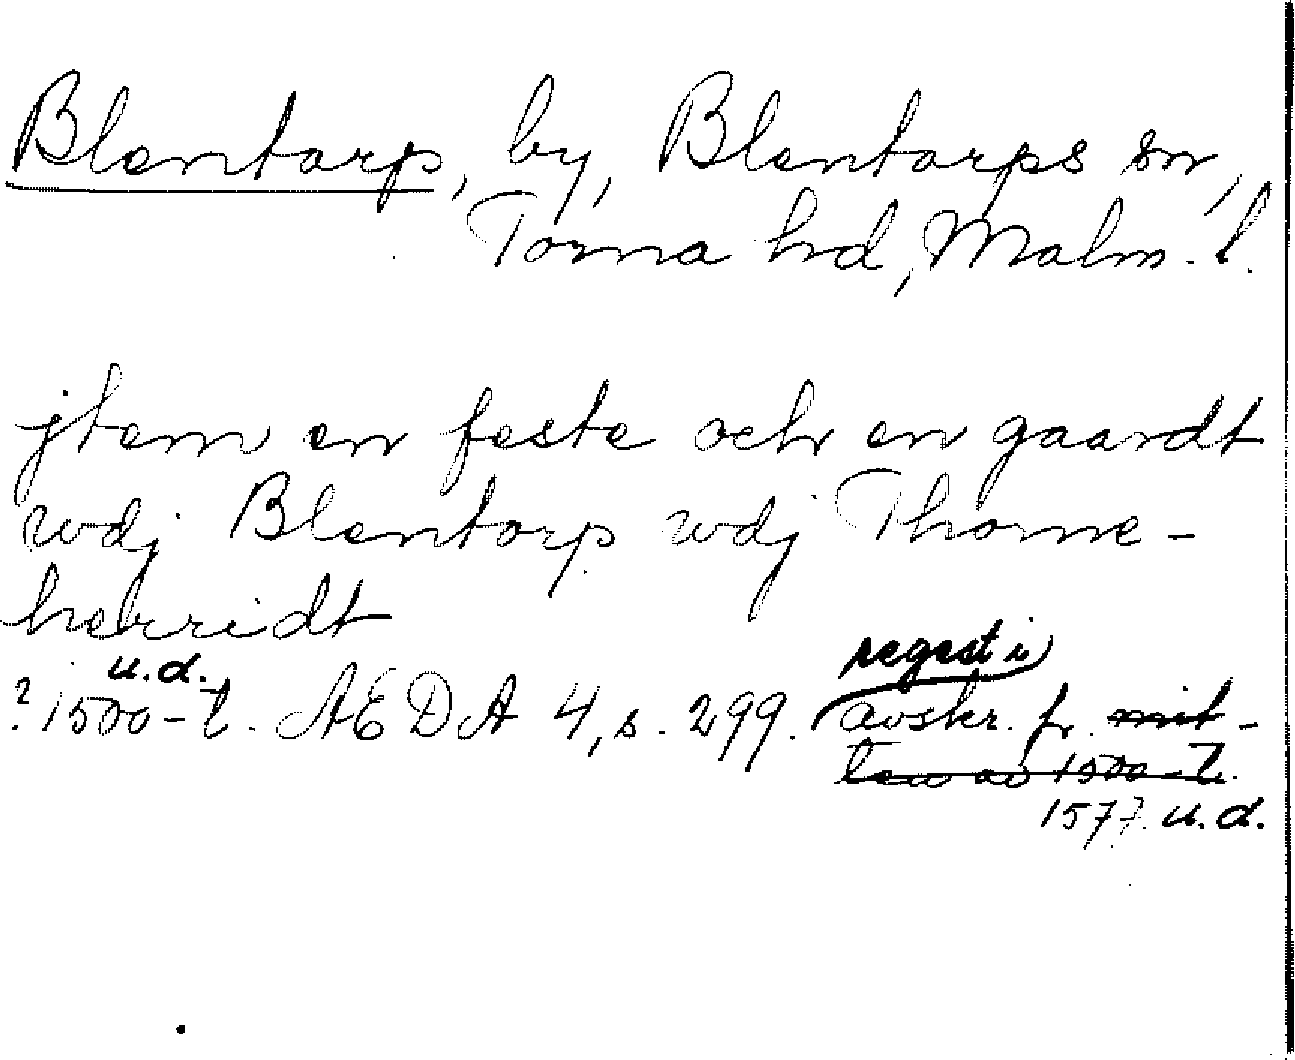 Blentarp, by, Blentarps sn,
Torna hd, Malm. l.
jtem en feste och en gaardt
wdj Blentorp wdj Thorne-
herridt
u.d. regest i
? 1500-t. AEDA 4, s. 299. avskr. fr. mit-
ten av 1500-t.
1577. u.d.